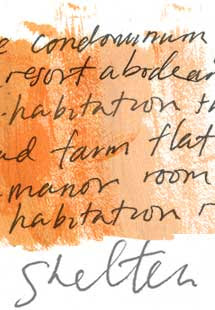 e condominum
resort abode an
habitation th
ad farm flat
manor room
habitation r
shelter